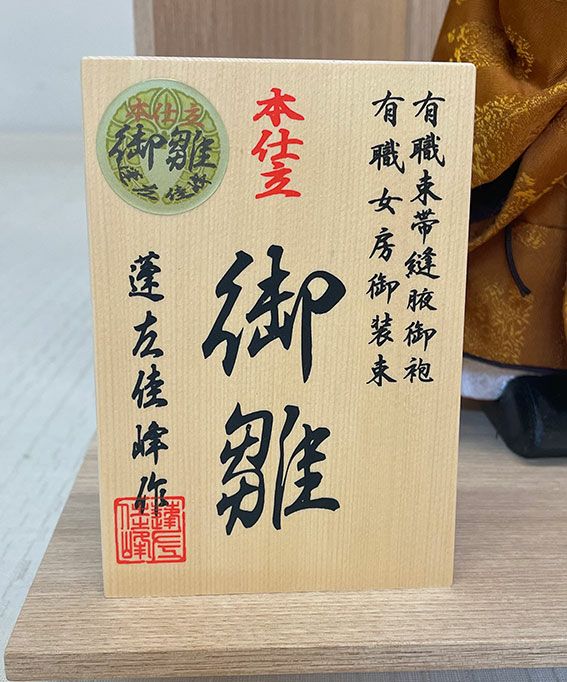 有職束帯縫腋御袍
有職女房御装束
本仕立
御雛
蓬左佳峰作
蓬左佳峰
本仕立
御雛